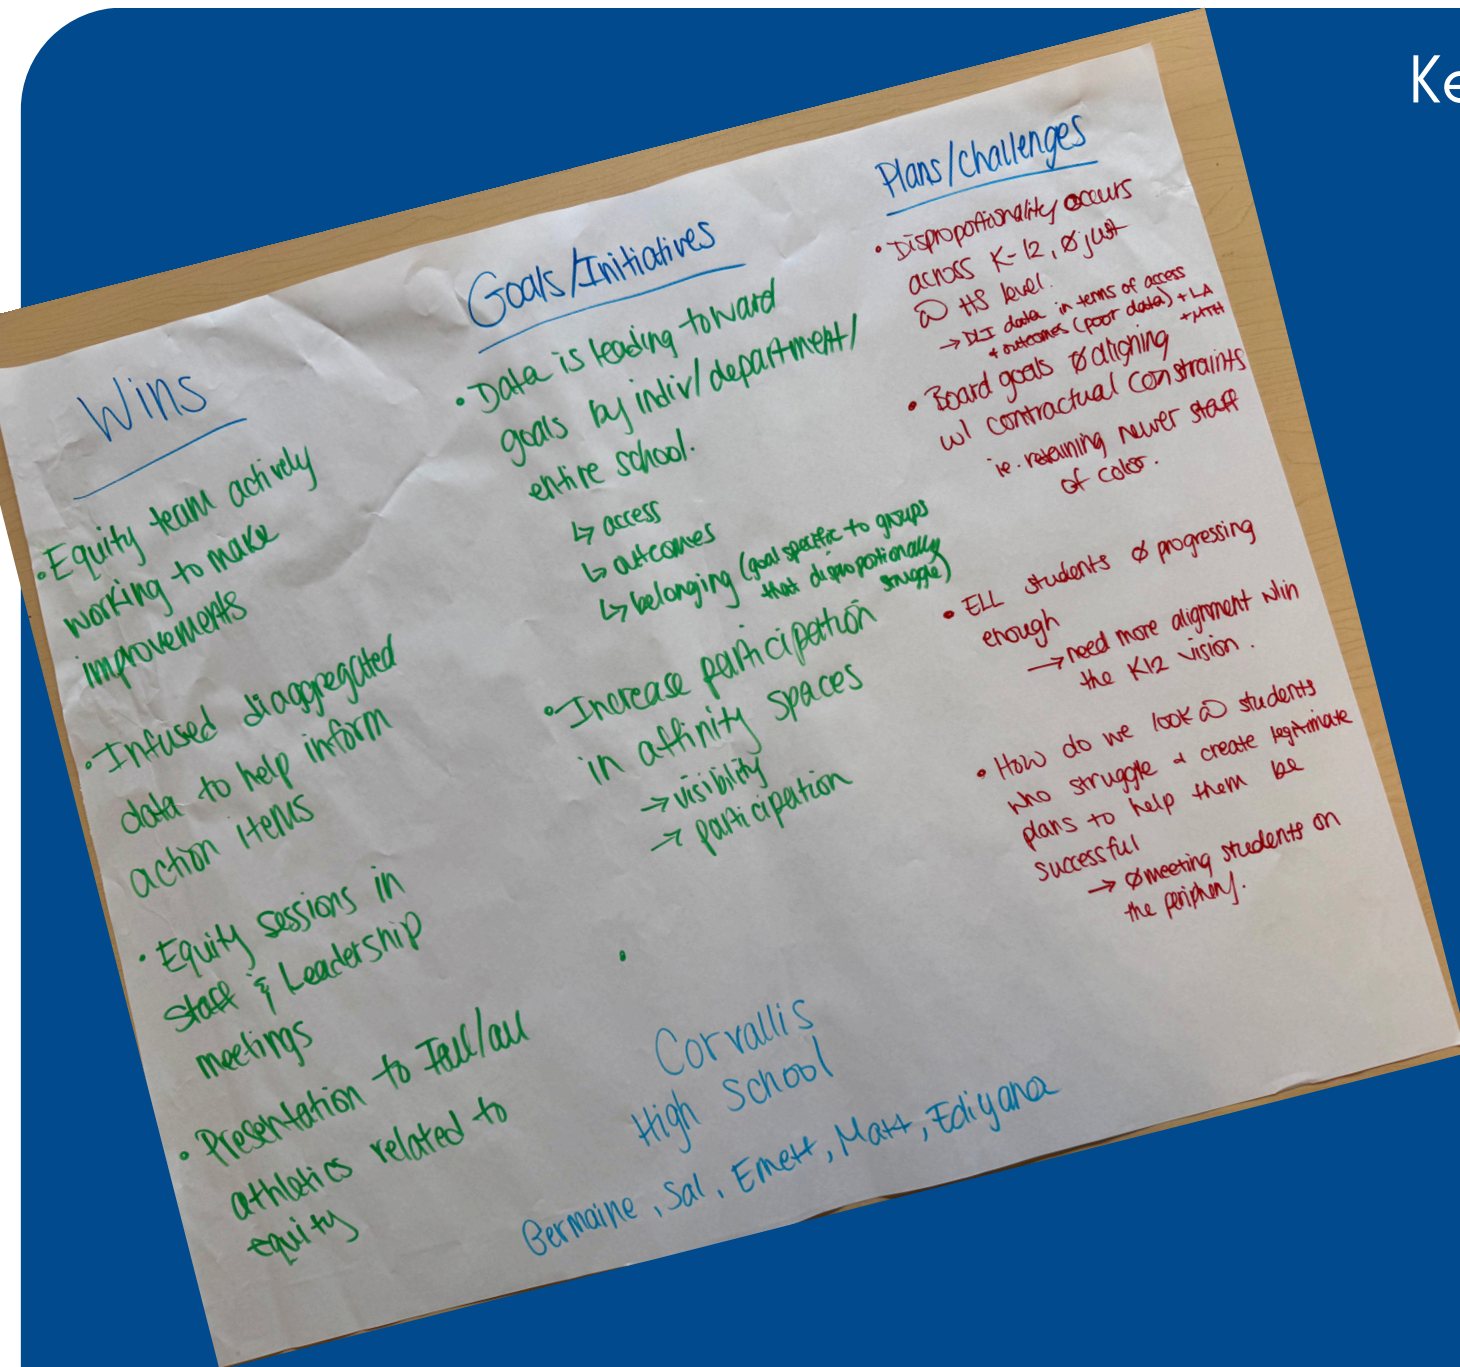 Ke
Wins
• Equity team actively
working to make
improvements
• Infused disaggregated
data to help inform
action items
• Equity sessions in
staff & Leadership
meetings
• Presentation to Fall/all
athletics related to
equity
Goals/Initiatives
• Data is leading toward
goals by indiv/department/
entire school.
↳ access
↳ outcomes
↳ belonging (goal specific to groups
that disproportionally
struggle)
• Increase participation
in affinity spaces
→ visibility
→ participation
•
Plans/Challenges
• Disproportionality occurs
across K-12, Ø just
@ HS level.
→ DLI data in terms of access
+ outcomes (poor data) + LA
+ MTH
• Board goals Ø aligning
w/ contractual constraints
ie. retaining newer staff
of color.
• ELL students Ø progressing
enough
→ need more alignment w/in
the K12 vision.
• How do we look @ students
who struggle + create legitimate
plans to help them be
successful
→ Ø meeting students on
the periphery.
Corvallis
High School
Germaine, Sal, Emett, Matt, Ediyana